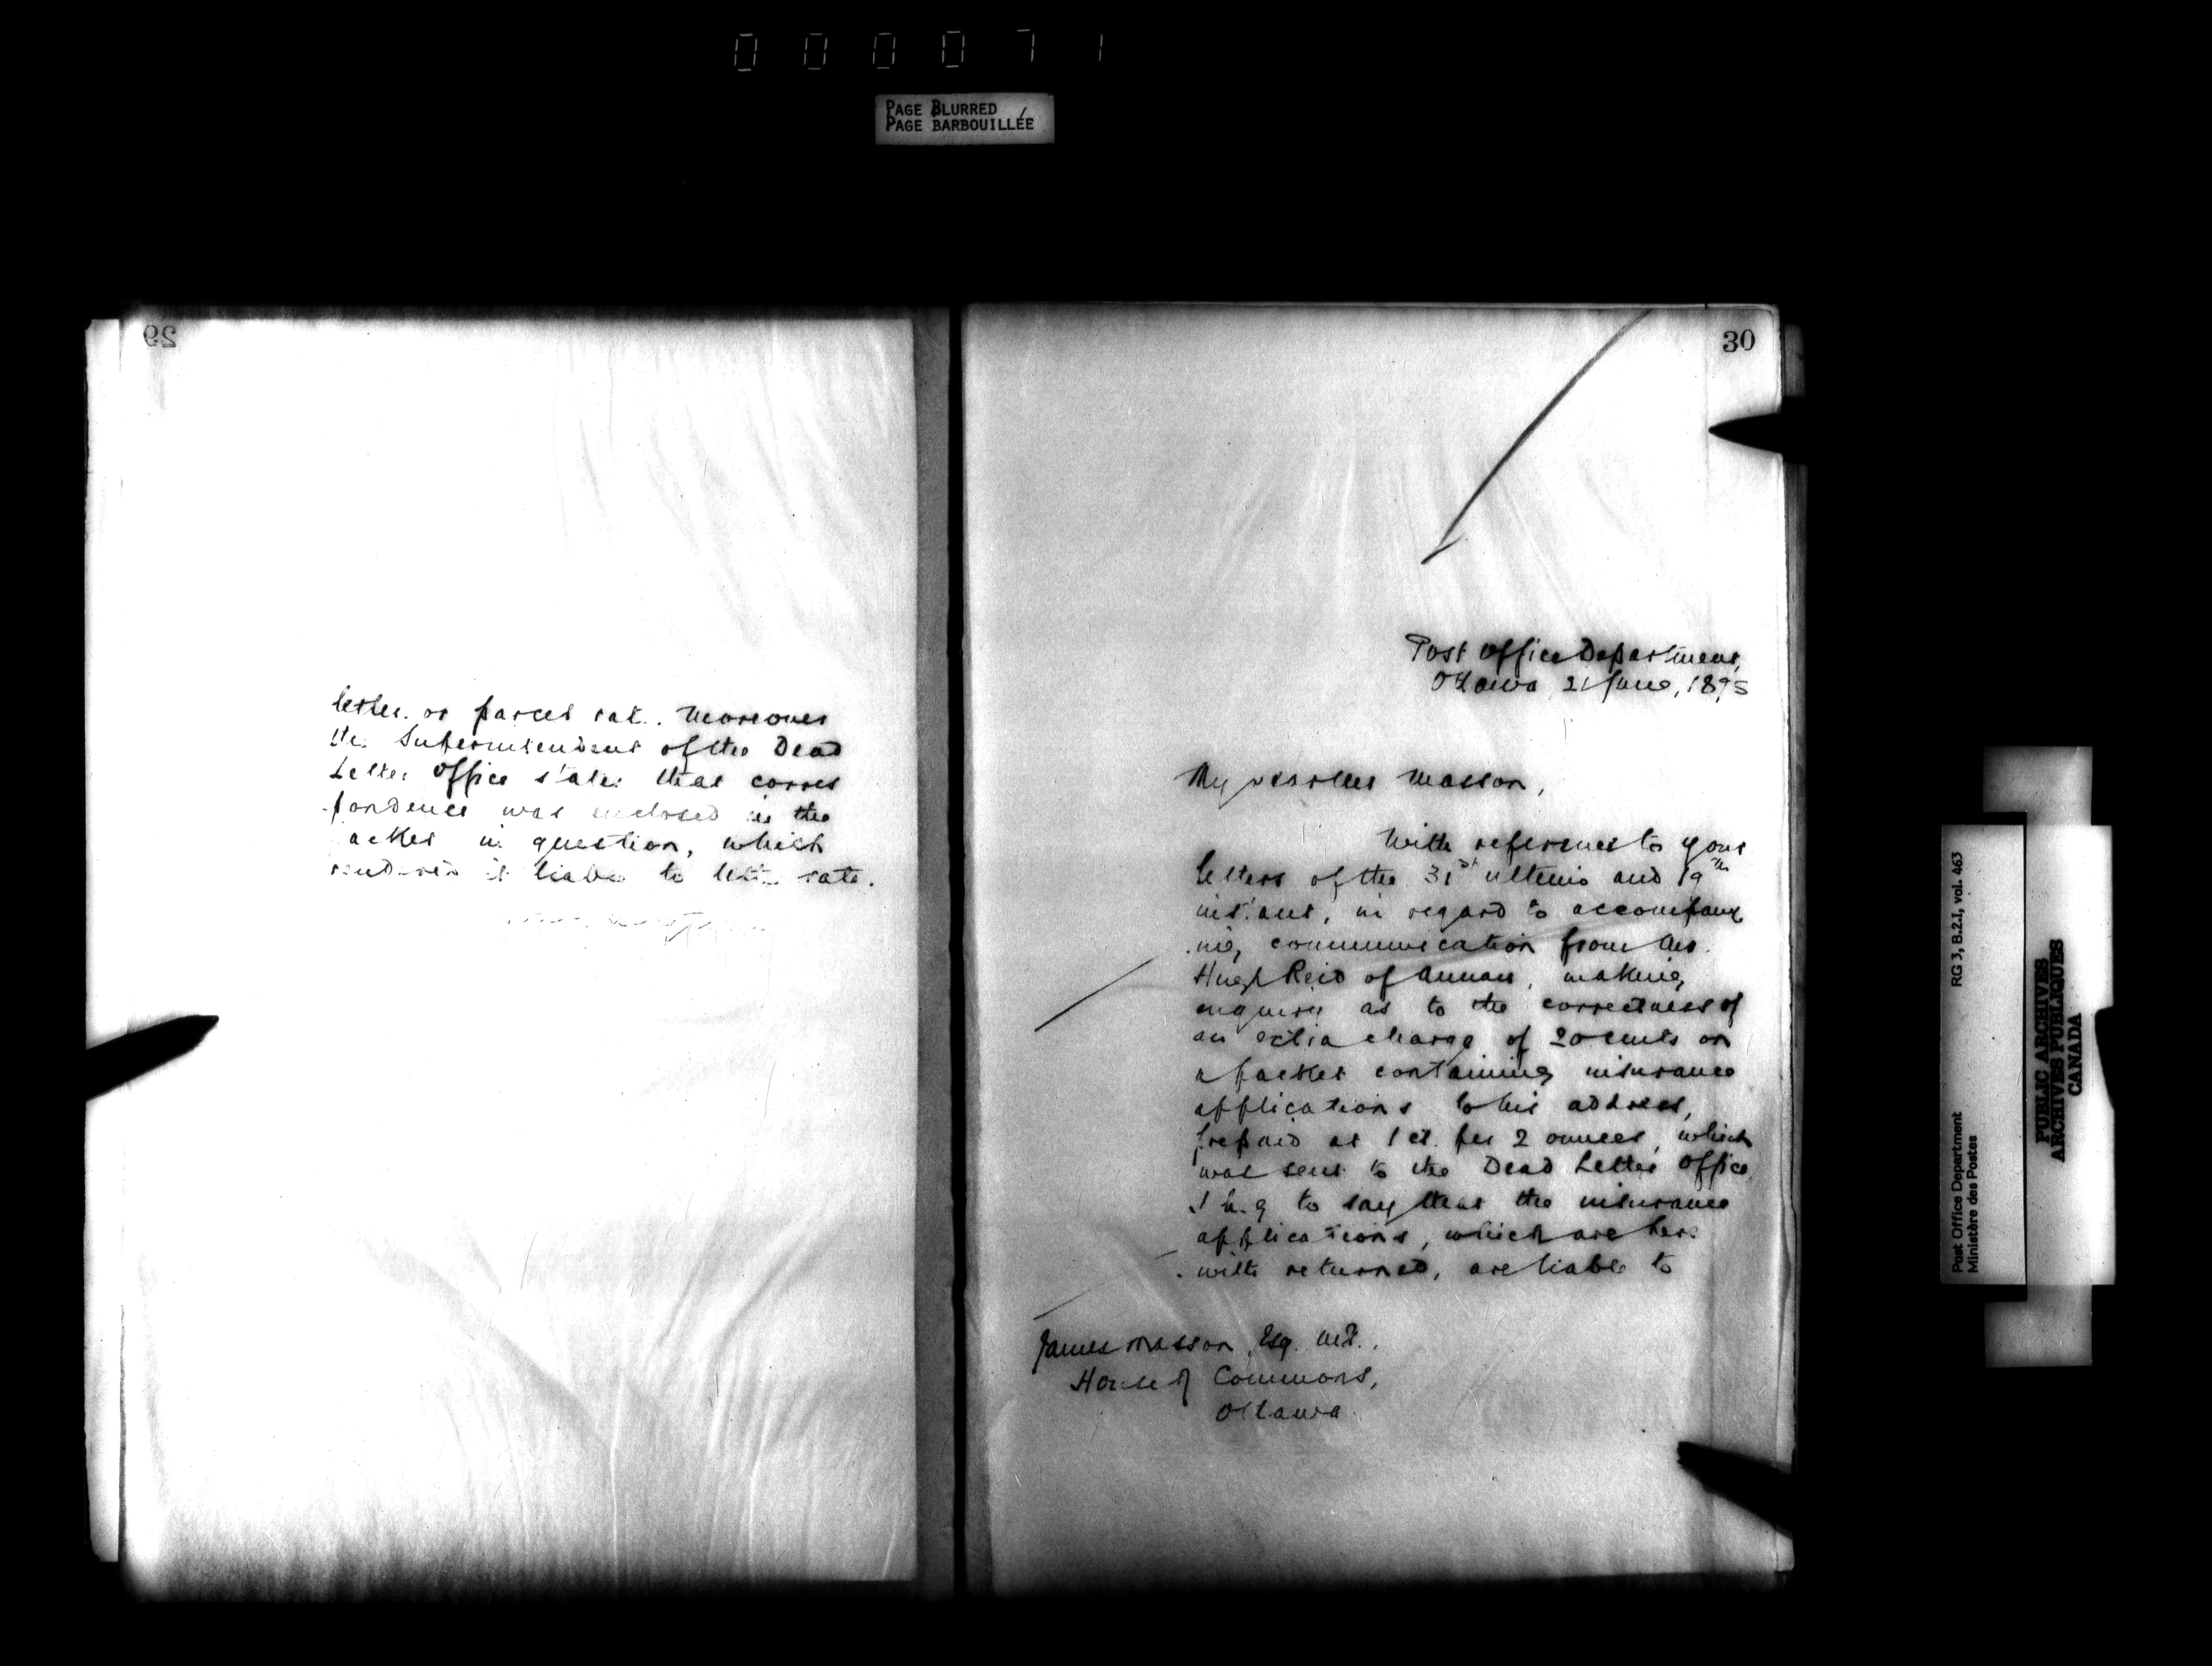 000071
PAGE BLURRED
PAGE BARBOUILLÉE
29
letter or parcel rate. Moreover
the Superintendent of the Dead
Letter Office states that corres
pondence was enclosed in the
packet in question, which
rendered it liable to letter rate.
30
Post Office Department,
Ottawa, 21 June, 1895
My dear Masson,
With reference to your
letters of the 31st ultimo and 19th
instant, in regard to accompany
ing communication from Mr.
Hugh Reid of Annan, making
enquiry as to the correctness of
an extra charge of 20 cents on
a packet containing insurance
applications to his address,
prepaid at 1 ct. per 2 ounces, which
was sent to the Dead Letter Office.
I beg to say that the insurance
applications, which are here
with returned, are liable to
James Masson, Esq. M.P.,
House of Commons,
Ottawa.
Post Office Department RG 3, B.2.I, vol. 463
Ministère des Postes
PUBLIC ARCHIVES
ARCHIVES PUBLIQUES
CANADA